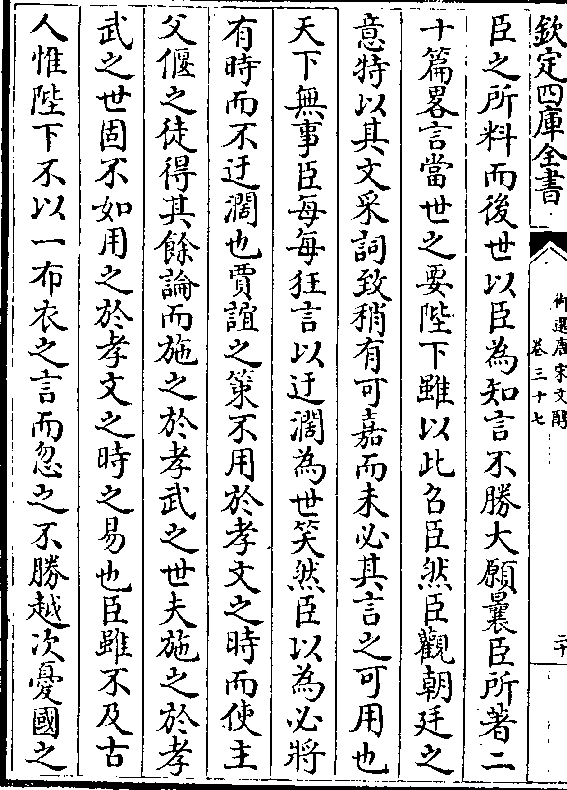 欽定四庫全書
御選唐宋文醇
卷三十七
二十
臣之所料而後世以臣為知言不勝大願曩臣所著二
十篇畧言當世之要陛下雖以此召臣然臣觀朝廷之
意特以其文采詞致稍有可嘉而未必其言之可用也
天下無事臣每每狂言以迂濶為世笑然臣以為必將
有時而不迂濶也賈誼之策不用於孝文之時而使主
父偃之徒得其餘論而施之於孝武之世夫施之於孝
武之世固不如用之於孝文之時之易也臣雖不及古
人惟陛下不以一布衣之言而忽之不勝越次憂國之